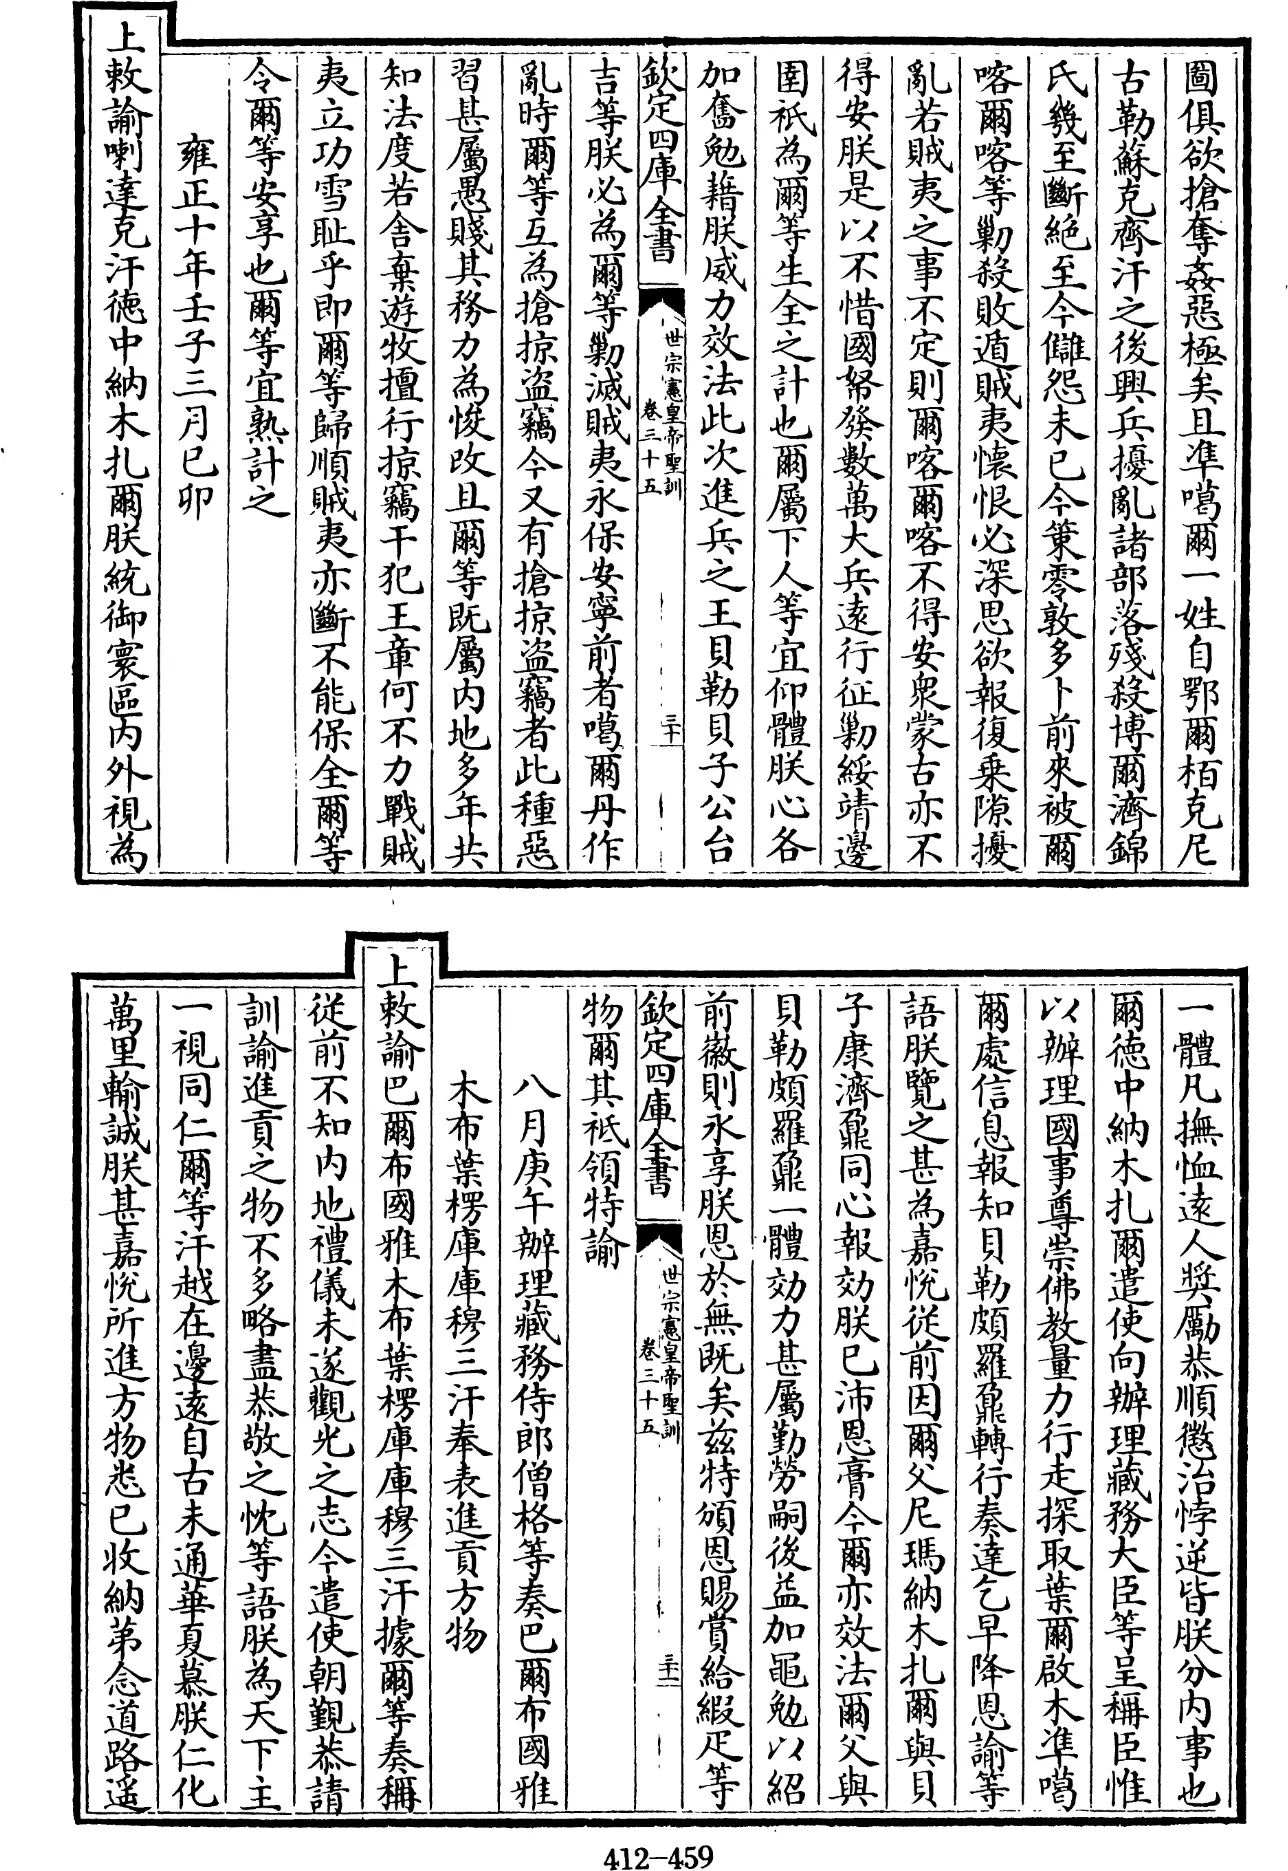 圖俱欲搶奪姦惡極矣且準噶爾一姓自鄂爾栢克尼
古勒蘇克齊汗之後興兵擾亂諸部落殘殺博爾濟錦
氏幾至斷絶至今讎怨未已今策零敦多卜前來被爾
喀爾喀等勦殺敗遁賊夷懐恨必深思欲報復乗隙擾
亂若賊夷之事不定則爾喀爾喀不得安衆蒙古亦不
得安朕是以不惜國帑發數萬大兵逺行征勦綏靖邊
圉祇為爾等生全之計也爾屬下人等宜仰體朕心各
加奮勉藉朕威力效法此次進兵之王貝勒貝子公台
欽定四庫全書
世宗憲皇帝聖訓
卷三十五
三十
吉等朕必為爾等勦滅賊夷永保安寧前者噶爾丹作
亂時爾等互為搶掠盜竊今又有搶掠盜竊者此種惡
習甚屬愚賤其務力為悛改且爾等既屬内地多年共
知法度若舎棄遊牧擅行掠竊干犯王章何不力戰賊
夷立功雪耻乎即爾等歸順賊夷亦斷不能保全爾等
令爾等安享也爾等宜熟計之
雍正十年壬子三月己卯
上敕諭喇達克汗徳中納木扎爾朕統御寰區内外視為
一體凡撫恤逺人奬勵恭順懲治悖逆皆朕分内事也
爾徳中納木扎爾遣使向辦理藏務大臣等呈稱臣惟
以辦理國事尊崇佛教量力行走探取葉爾啟木準噶
爾處信息報知貝勒頗羅鼐轉行奏達乞早降恩諭等
語朕覽之甚為嘉恱從前因爾父尼瑪納木扎爾與貝
子康濟鼐同心報効朕已沛恩膏今爾亦效法爾父與
貝勒頗羅鼐一體効力甚屬勤勞嗣後益加黽勉以紹
前徽則永享朕恩於無既矣兹特頒恩賜賞給緞疋等
欽定四庫全書
世宗憲皇帝聖訓
卷三十五
三十一
物爾其祇領特諭
八月庚午辦理藏務侍郎僧格等奏巴爾布國雅
木布葉楞庫庫穆三汗奉表進貢方物
上敕諭巴爾布國雅木布葉楞庫庫穆三汗據爾等奏稱
從前不知内地禮儀未遂觀光之志今遣使朝覲恭請
訓諭進貢之物不多略盡恭敬之忱等語朕為天下主
一視同仁爾等汗越在邊逺自古未通華夏慕朕仁化
萬里輸誠朕甚嘉恱所進方物悉已收納第念道路遥
412-459